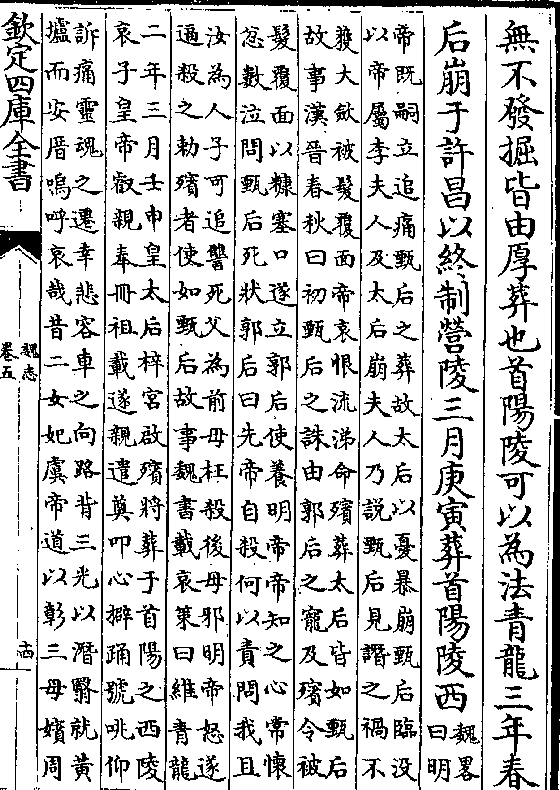 無不發掘皆由厚葬也首陽陵可以為法青龍三年春
后崩于許昌以終制營陵三月庚寅葬首陽陵西
魏畧
曰明
帝既嗣立追痛甄后之葬故太后以憂暴崩甄后臨没
以帝屬李夫人及太后崩夫人乃説甄后見譖之禍不
獲大斂被髮覆面帝哀恨流涕命殯葬太后皆如甄后
故事漢晉春秋曰初甄后之誅由郭后之寵及殯令被
髮覆面以糠塞口遂立郭后使養明帝帝知之心常懷
忿數泣問甄后死狀郭后曰先帝自殺何以責問我且
汝為人子可追讐死父為前母枉殺後母邪明帝怒遂
逼殺之勅殯者使如甄后故事魏書載哀策曰維青龍
二年三月壬申皇太后梓宮啟殯將葬于首陽之西陵
哀子皇帝叡親奉冊祖載遂親遣奠叩心擗踊號咷仰
訴痛靈魂之遷幸悲容車之向路背三光以潛翳就黃
壚而安厝嗚呼哀哉昔二女妃虞帝道以彰三母嬪周
欽定四庫全書
魏志
卷五
十四